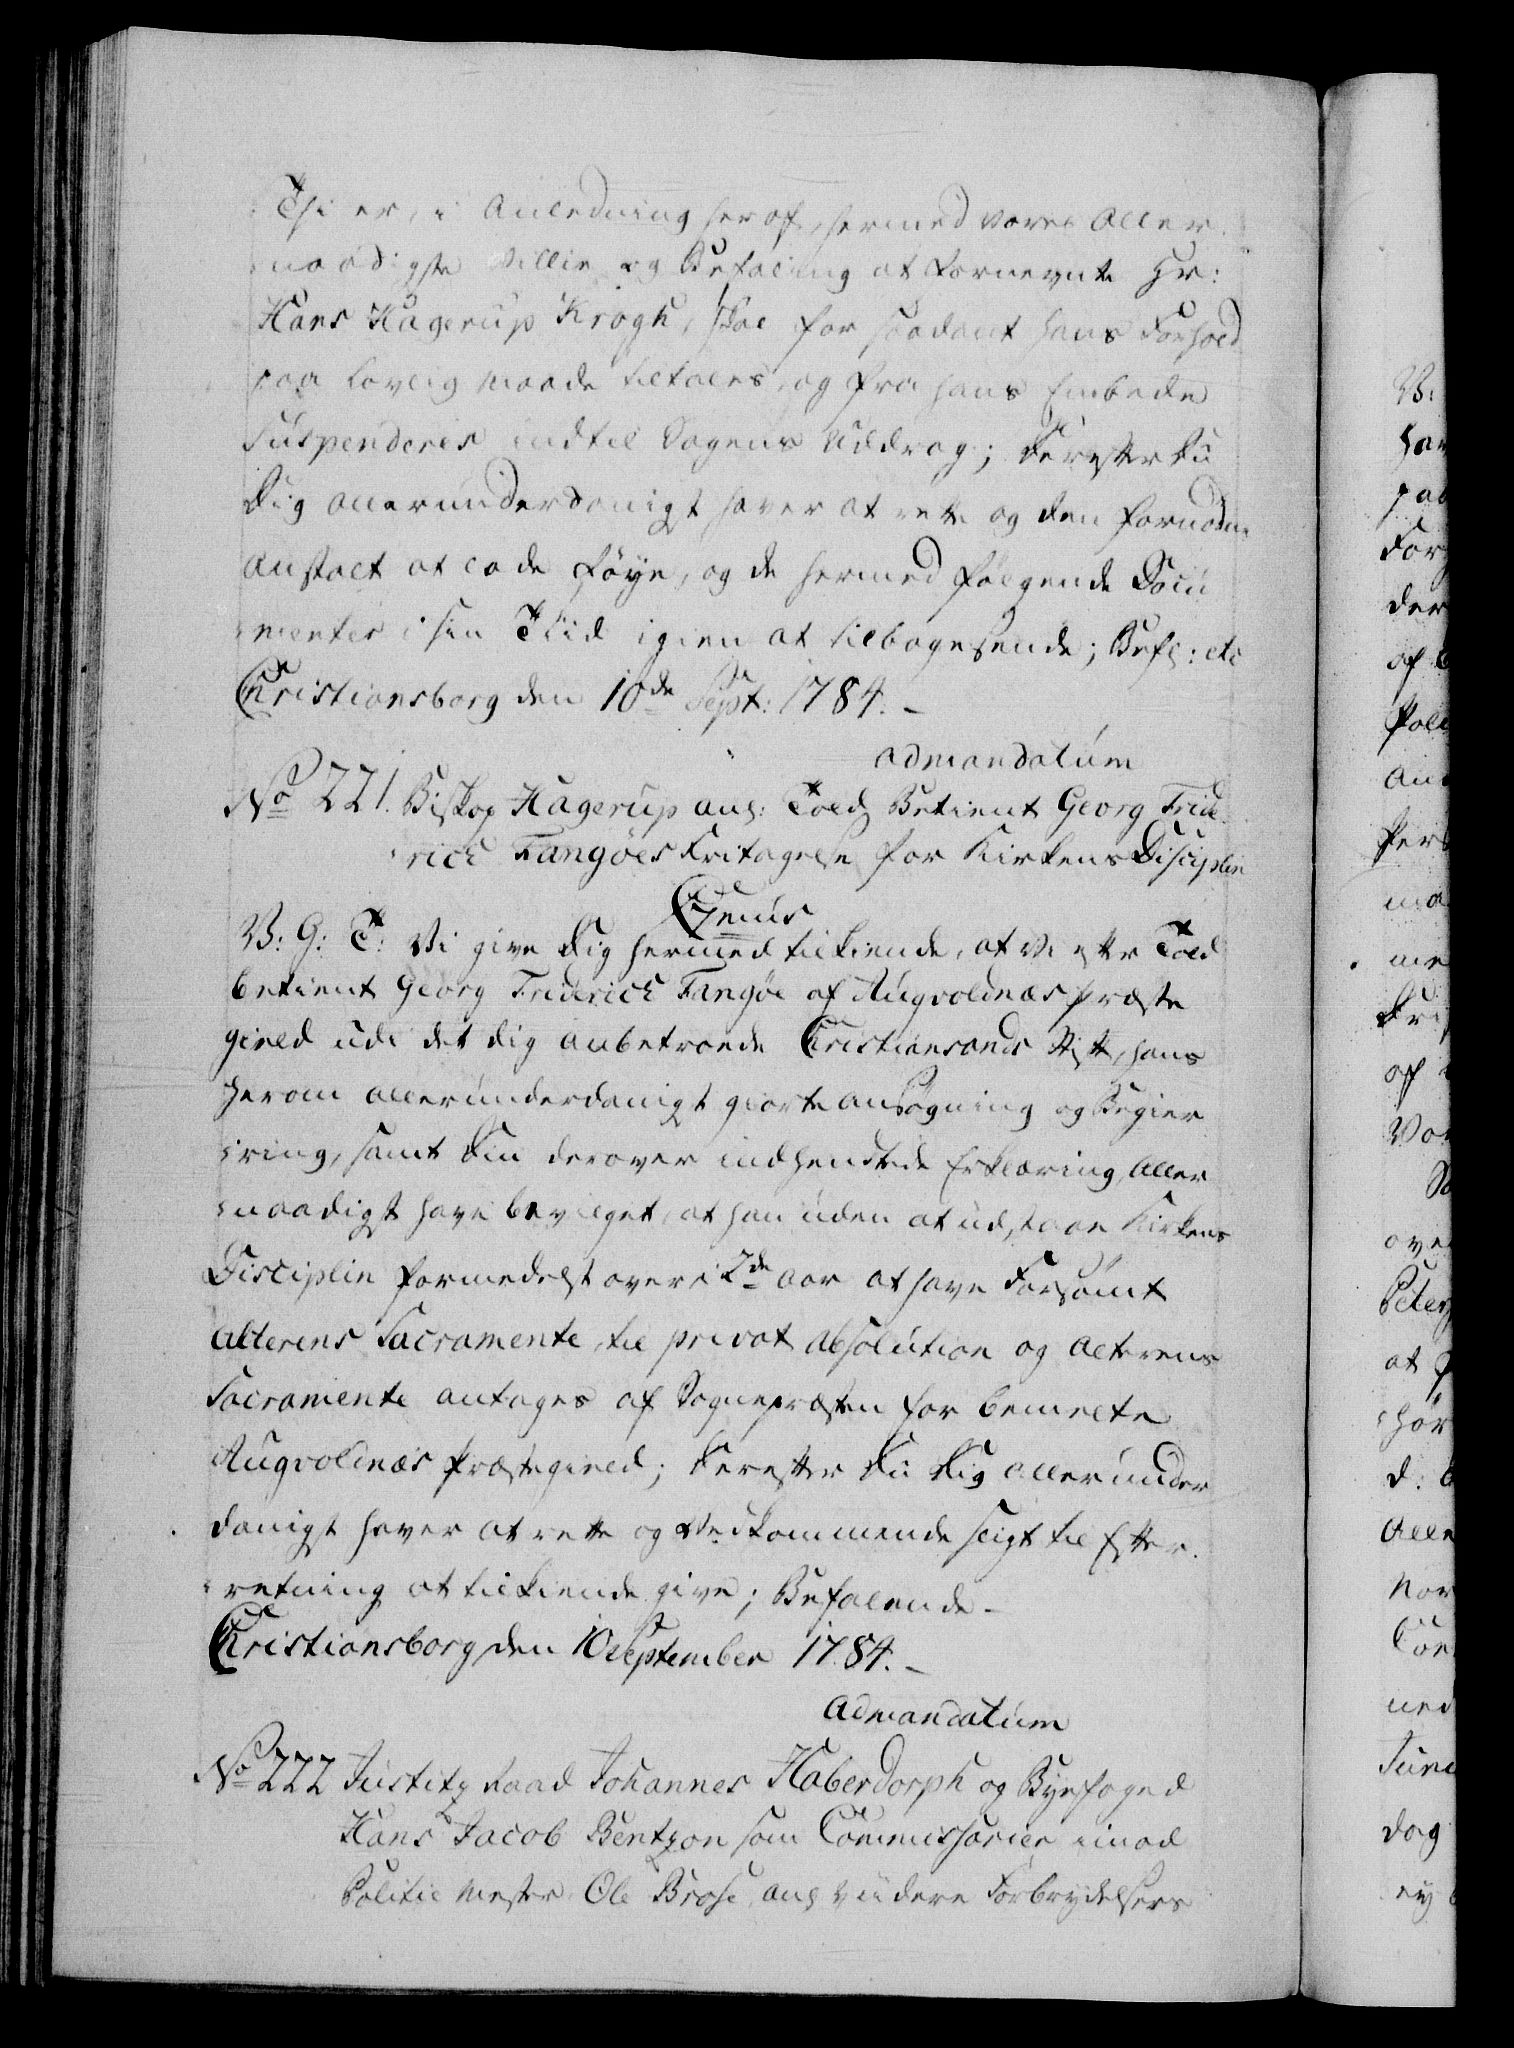 Thi er, i Anledning heraf, hermed Vores Aller-
naadigste Villie og Befaling at fornevnte Hr:
Hans Hagerup Krogh, skal for saadant hans Forhold
paa lovlig Maade tiltales, og fra hans Embede
Suspenderes indtil Sagens Uddrag; Derefter Du
Dig allerunderdanigst haver at rette og den fornødne
Anstalt at lade føye, og de hermed følgende Docu
menter i sin Tiid igien at tilbagesende; Befl: etc
Christiansborg den 10de Sept: 1784. -
ad mandatum
No 221. Biskop Hagerup ang: Told Betient Georg Fride
rich Fangøes Fritagelse for Kirkens Disciplin
V: G: T: Vi give Dig hermed tilkiende, at Vi efter Told
betient Georg Friderich Fangøe af Augvoldnæs Præste
gield udi det dig anbetroede Christiansands Stift, hans
herom allerunderdanigst giorte ansøgning og Begier
ring, samt Din derover indhendtede Erklæring, Aller
naadigst have bevilget, at han uden at udstaae Kirkens
Disciplin formedelst over i 2de Aar at have Forsømt
Alterens Sacramente, til privat Absolution og Alterens
Sacramente antages af Sognepræsten for bemelte
Augvoldnæs Præstegield; Derefter Du Dig allerunder
danigst haver at rette og Vedkommende sligt til Efter-
retning at tilkiende give; Befalende -
Christiansborg den 10 September 1784. -
ad mandatum
No 222 Justitz Raad Johannes Haberdorph og Byefoged
Hans Jacob Bentzon som Commissarier imod
Politie Mester Ole Brose ang videre Forbrydelsers